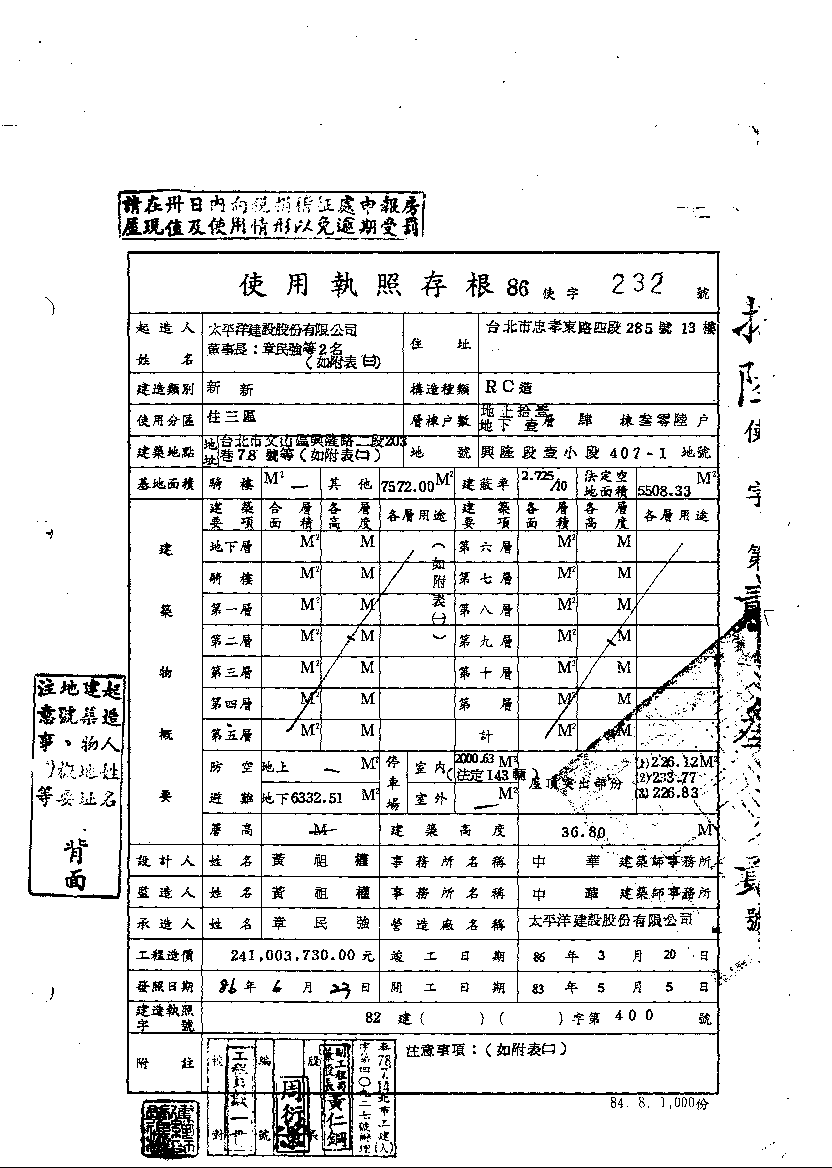 請在卅日內向稅捐稽征處申報房
屋現值及使用情形以免逾期受罰
使用執照存根 86 使字 232 號
起造人姓名 太平洋建設股份有限公司 董事長：章民強等2名 （如附表㈡） 住址 台北市忠孝東路四段285號13樓
建造類別 新 新 構造種類 RC造
使用分區 住三區 層棟戶數 地上拾叁 地下壹 層 肆 棟叁零陸戶
建築地點 地址 台北市文山區興隆路二段203巷78號等（如附表㈡） 地號 興隆段壹小段407-1地號
基地面積 騎樓 M² — 其他 7572.00 M² 建蔽率 2.725/10 法定空地面積 5508.33
建築物概要
建築要項 各層面積 各層高度 各層用途 建築要項 各層面積 各層高度 各層用途
地下層 M² M （如附表㈠） 第六層 M² M
騎樓 M² M 第七層 M² M
第一層 M² M 第八層 M² M
第二層 M² M 第九層 M² M
第三層 M² M 第十層 M² M
第四層 M² M 第 層 M² M
第五層 M² M 計 M² M
防空避難 地上 — M² 停車場 室內 2000.63 M² （法定143輛） 屋頂突出部份 (1)226.12 M²
(2)233.77
地下6332.51 M² 室外 — M² (3)226.83
簷高 M 建築高度 36.80 M
設計人 姓名 黃祖權 事務所名稱 中華建築師事務所
監造人 姓名 黃祖權 事務所名稱 中華建築師事務所
承造人 姓名 章民強 營造廠名稱 太平洋建設股份有限公司
工程造價 241,003,730.00元 竣工日期 86年3月20日
發照日期 86年6月23日 開工日期 83年5月5日
建造執照字號 82建（ ）（ ）字第400號
附註 注意事項：（如附表㈡）
校對
工程員
編號
周衍
股長
副工程司
黃仁鋼
84. 8. 1,000份
起造人姓名
建築物地址
地號
注意事
等
背面
使字第
號